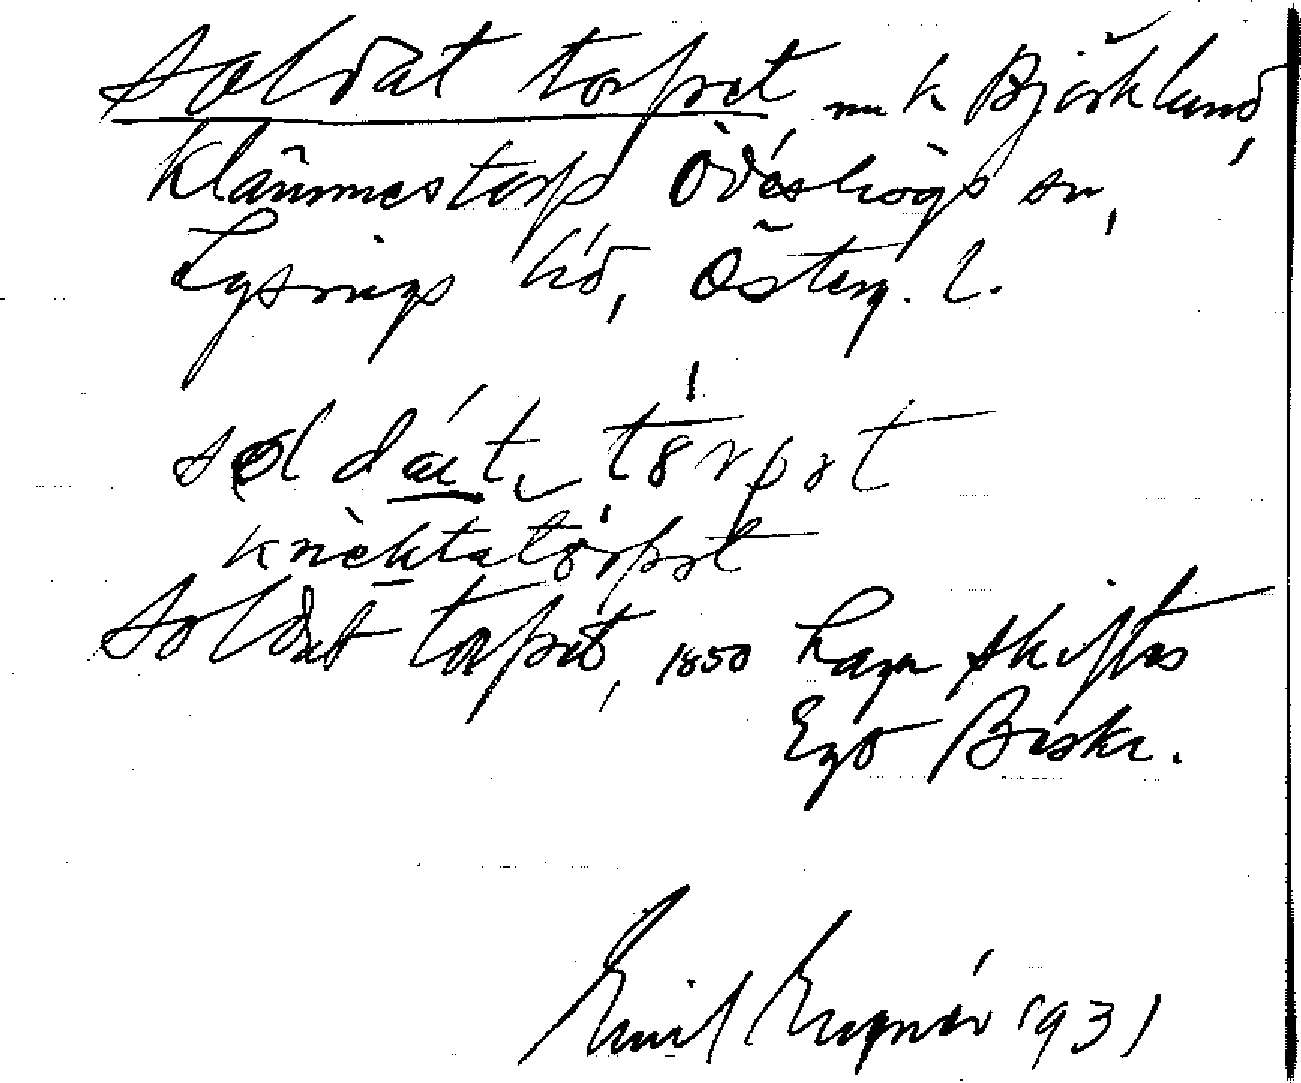 Soldattorpet, nu k Björklund,
Klämmestorp Ödeshögs sn,
Lysings hd, Österg. l.
soldat torpet
knektatorpet
Soldattorpet, 1850 Laga skiftes
Ego Beskr.
Emil 1931